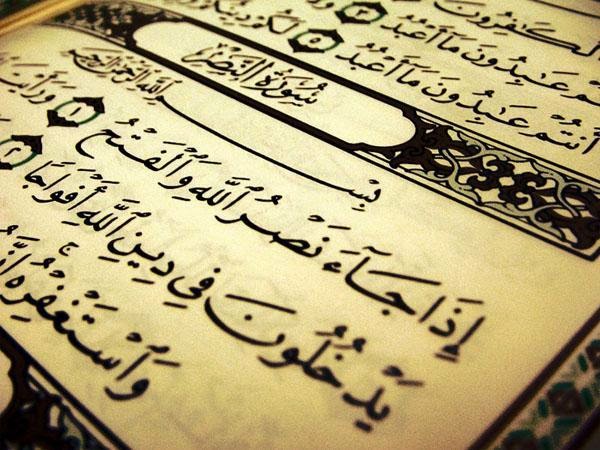 ٱلۡكَٰفِرُونَ
عَٰبِدُونَ مَآ أَعۡبُدُ ٣
أَنتُمۡ عَٰبِدُونَ مَآ أَعۡبُدُ ٥ لَكُمۡ دِينُكُمۡ
سُورَةُ النَّصۡرِ
بِسۡمِ ٱللَّهِ ٱلرَّحۡمَٰنِ ٱلرَّحِيمِ
إِذَا جَآءَ نَصۡرُ ٱللَّهِ وَٱلۡفَتۡحُ ١ وَرَأَيۡتَ
يَدۡخُلُونَ فِي دِينِ ٱللَّهِ أَفۡوَاجٗا ٢
وَٱسۡتَغۡفِرۡهُۚ